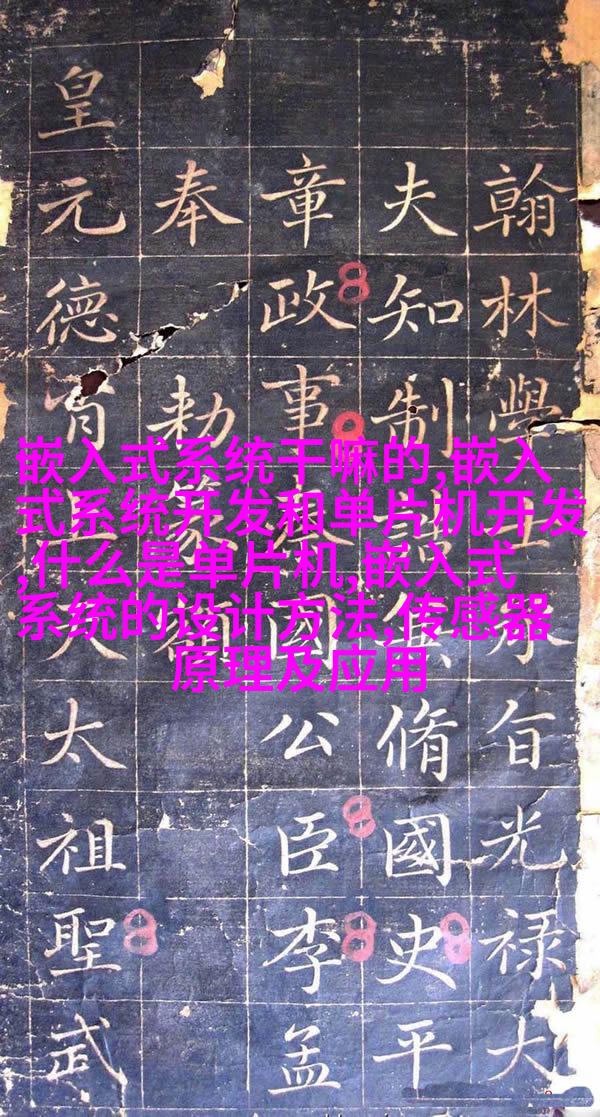 嵌入式系统干嘛的,嵌入
式系统开发和单片机开发
,什么是单片机,嵌入式
系统的设计方法,传感器
原理及应用
翰林學士承旨光禄大
夫知制誥兼脩國史平
章政事秦國公臣李孟
奉勅篆額
皇元德太祖聖武